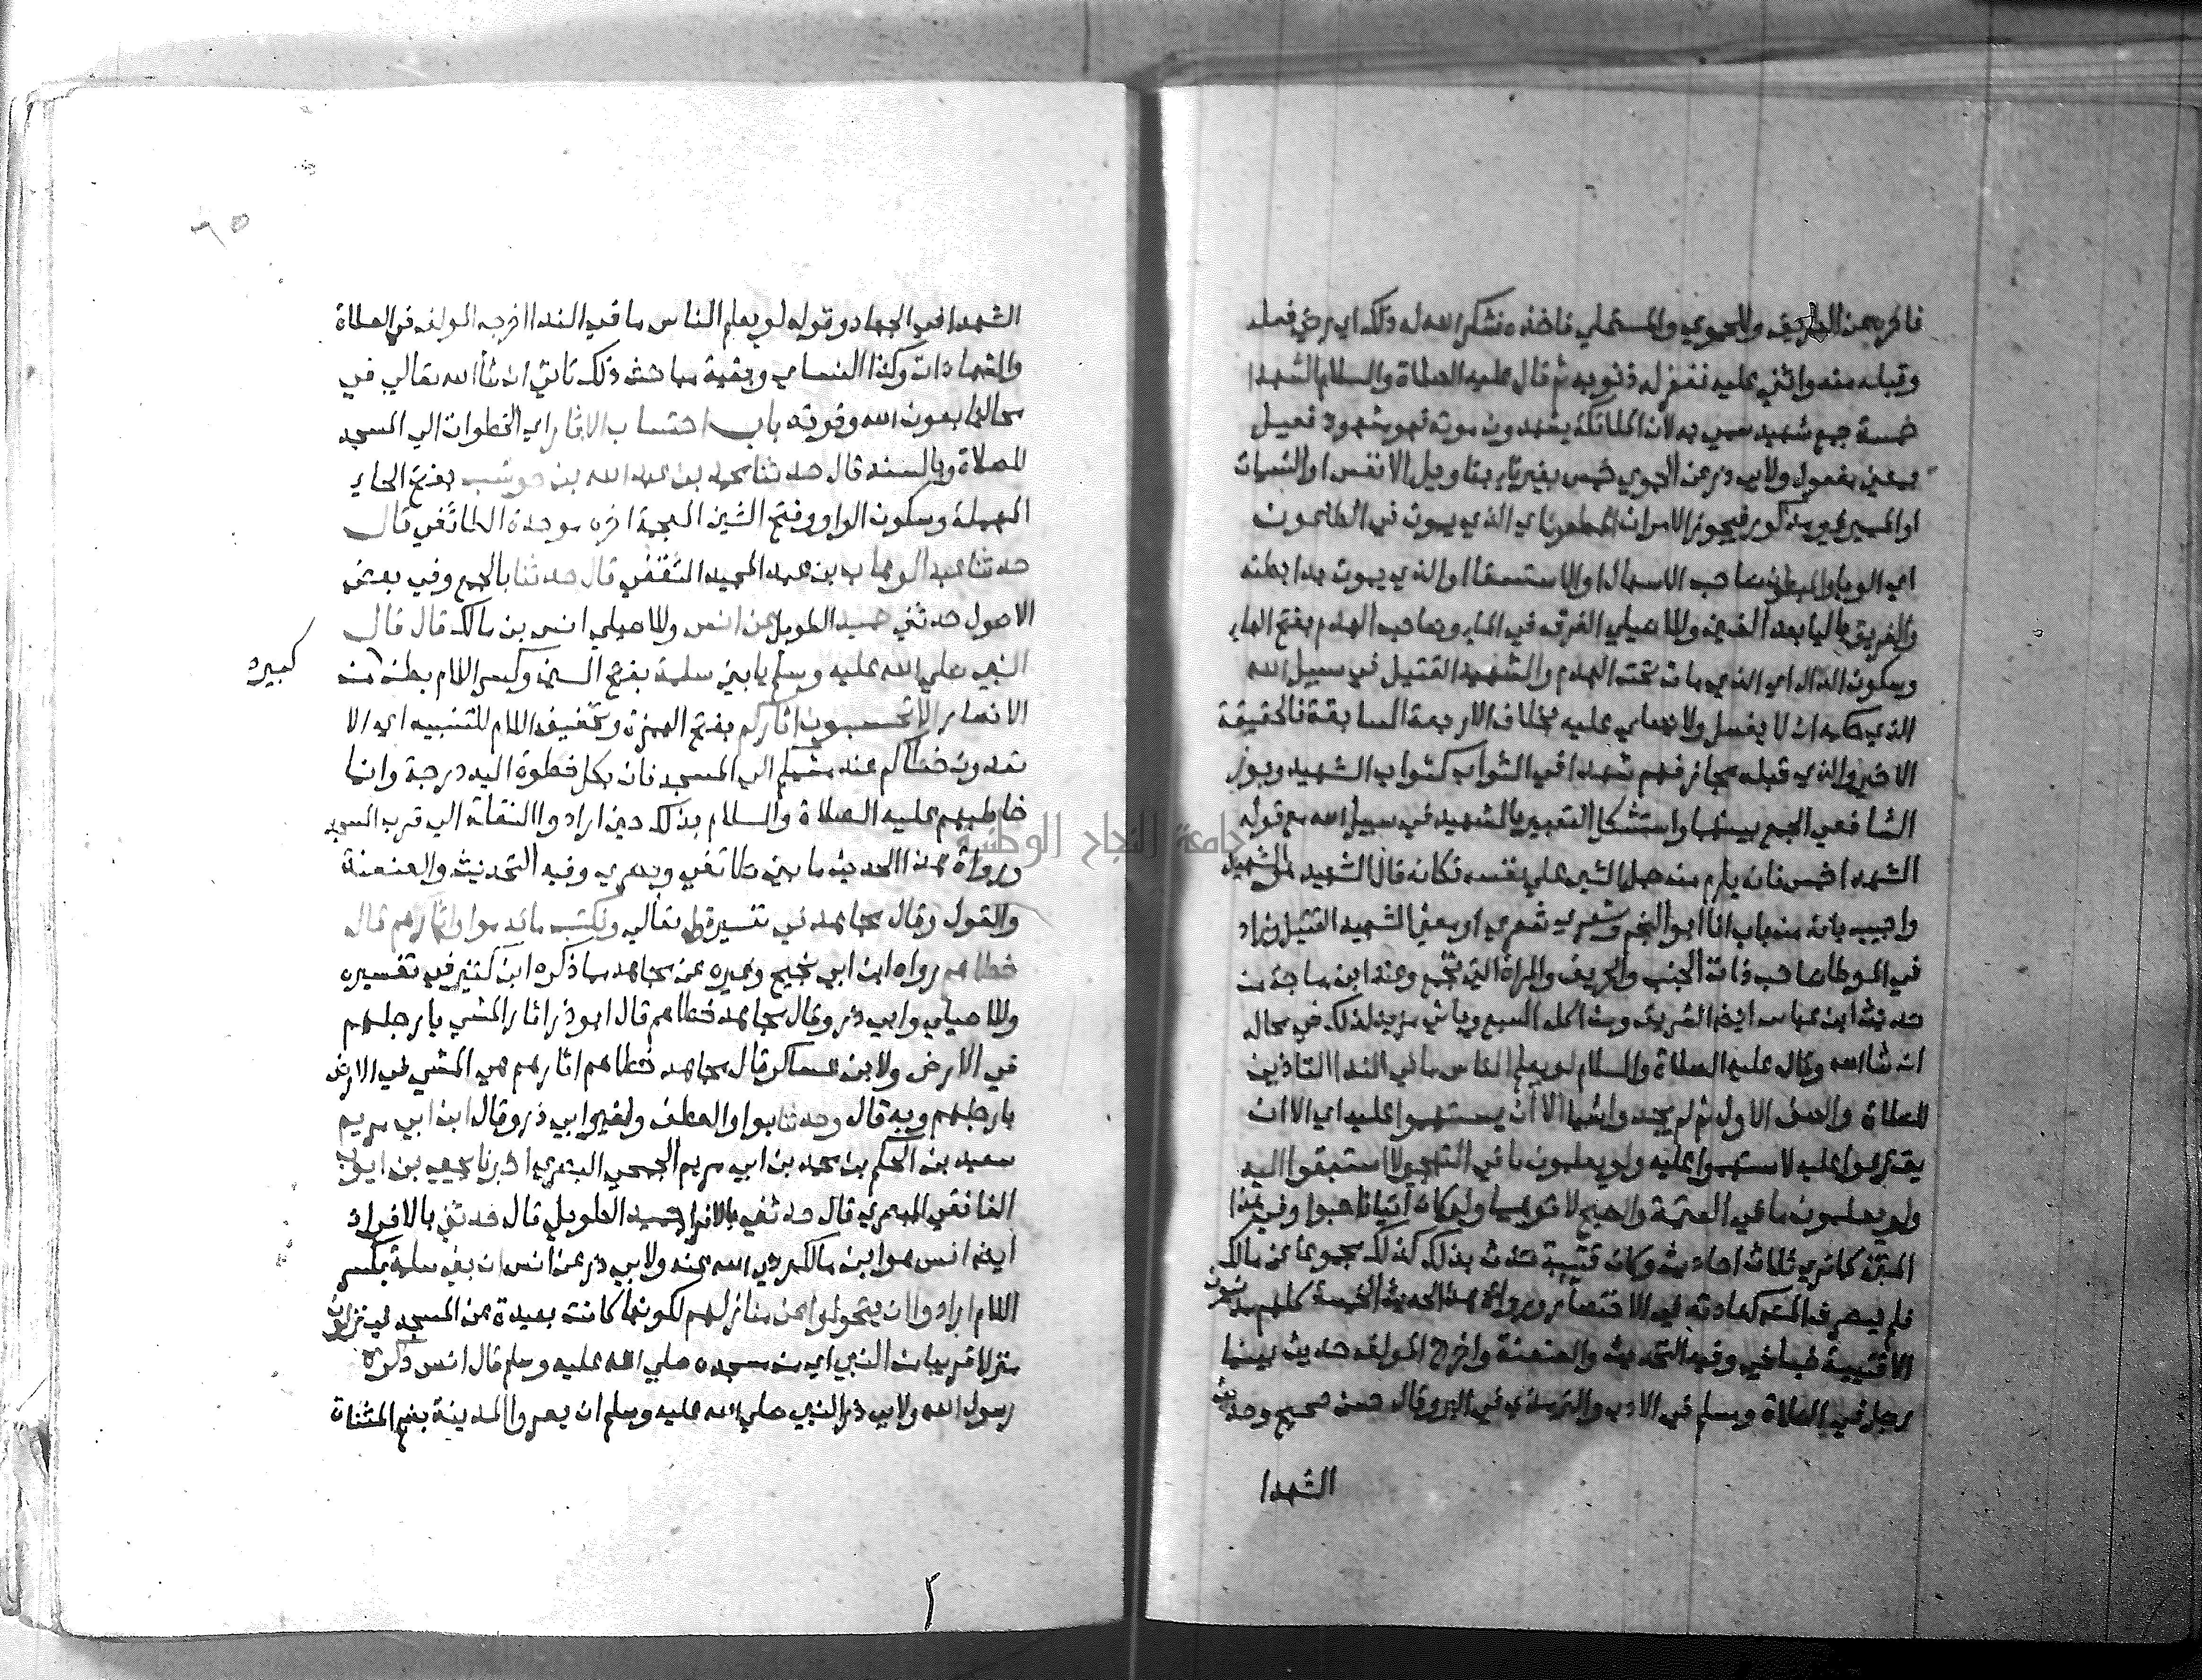 فاخره عن الطريق وللحموي والمستملي فاخذه فشكر الله له ذلك اي رضي فعله
وقبله منه واثني عليه فغفر له ذنوبه ثم قال عليه الصلاة والسلام الشهدا
خمسة جمع شهيد سمي به لان الملائكة يشهدون موته فهو مشهود فعيل
بمعني مفعول ولابي ذر عن الحموي خمس بغير تاء بتاويل الانفس او النسمات
او المميز غير مذكور فيجوز الامران المطعون اي الذي يموت في الطاعون
اي الوبا والمبطون صاحب الاسهال او الاستسقا او الذي يموت بدا بطنه
والغريق باليا بعد الغين وللاصيلي الغرق في الماء وصاحب الهدم بفتح الهاء
وسكون الدال اي الذي مات تحته الهدم والشهيد القتيل في سبيل الله
الذي حكمه ان لا يغسل ولا يصلي عليه بخلاف الاربعة السابقة فالحقيقة
الاخير والذي قبله مجاز فهم شهدا في الثواب كثواب الشهيد وجوز
الشافعي الجمع بينهما واستشكل التعبير بالشهيد في سبيل الله مع قوله
الشهدا خمس فانه يلزم منه حمل الشي علي نفسه فكانه قال الشهيد هو الشهيد
واجيب بانه من باب انا ابو النجم وشعري شعري او معني الشهيد القتيل وزاد
في الموطا صاحب ذات الجنب والحريق والمراة التي تموت بجمع وعند ابن ماجة من
حديث ابن عباس ايضا الشريق ومن اكله السبع وياتي مزيد لذلك في محاله
ان شا الله وقال عليه الصلاة والسلام لو يعلم الناس ما في الندا التاذين
للصلاة والصف الاول ثم لم يجدوا شيا الا ان يستهموا عليه اي الا ان
يقترعوا عليه لاستهموا عليه ولو يعلمون ما في التهجير لاستبقوا اليه
ولو يعلمون ما في العتمة والصبح لاتوهما ولو كان اتيانا حبوا وفي هذا
المتن كما تري ثلاث احاديث وكان قتيبة حدث بذلك كذلك مجموعا عن مالك
فلم يتصرف المؤلف كعادته في الاختصار ورواة هذا الحديث الخمسة كلهم مدنيون
الا قتيبة فبلخي وفيه التحديث والعنعنة واخرج المولف حديث بينما
رجل في الصلاة ومسلم في الادب والترمذي في البر وقال حسن صحيح وحديث
الشهدا
٦٥
الشهدا في الجهاد وقوله لو يعلم الناس ما في الندا اخرجه المولف في الصلاة
والشهادات وكذا النساي وبقية مباحث ذلك تاتي ان شا الله تعالي في
محالها بعون الله وقوته باب احتساب الاثار اي الخطوات الي المسجد
للصلاة وبالسند قال حدثنا محمد بن عبد الله بن حوشب بفتح الحاء
المهملة وسكون الواو وفتح الشين المعجمة اخره موحدة الطائفي قال
حدثنا عبد الوهاب بن عبد المجيد الثقفي قال حدثنا بالجمع وفي بعض
الاصول حدثني حميد الطويل عن انس وللاصيلي انس بن مالك قال قال
النبي صلي الله عليه وسلم يا بني سلمة بفتح السين وكسر اللام بطن من
كبيره
الانصار الا تحتسبون اثاركم بفتح الهمزة وتخفيف اللام للتنبيه اي الا
تعدون خطاكم عند مشيكم الي المسجد فان بكل خطوة اليه درجة وانما
خاطبهم عليه الصلاة والسلام بذلك حين ارادوا النقلة الي قرب المسجد
ورواة هذا الحديث ما بين طائفي وبصري وفيه التحديث والعنعنة
والقول وقال مجاهد في تفسير قوله تعالي ونكتب ما قدموا واثارهم قال
خطاهم رواه ابن ابي نجيح وغيره عن مجاهد مما ذكره ابن كثير في تفسيره
وللاصيلي وابي ذر وقال مجاهد خطاهم قال ابو ذر اثار المشي بارجلهم
في الارض ولابن عساكر قال مجاهد خطاهم اثارهم هي المشي في الارض
بارجلهم وبه قال وحدثنا بواو العطف ولغير ابي ذر وقال ابن ابي مريم
سعيد بن الحكم بن محمد بن ابي مريم الجمحي البصري اخبرنا يحيي بن ايوب
الغافقي المصري قال حدثني بالافراد حميد الطويل قال حدثني بالافراد
ايضا انس هو ابن مالك رضي الله عنه ولابي ذر عن انس ان بني سلمة بكسر
اللام ارادوا ان يتحولوا عن منازلهم لكونها كانت بعيدة من المسجد فينزلون
منزلا قريبا من النبي اي من مسجده صلي الله عليه وسلم قال انس فكره
رسول الله ولابي ذر النبي صلي الله عليه وسلم ان يعروا المدينة بضم المثناة
جامعة النجاح الوطنية